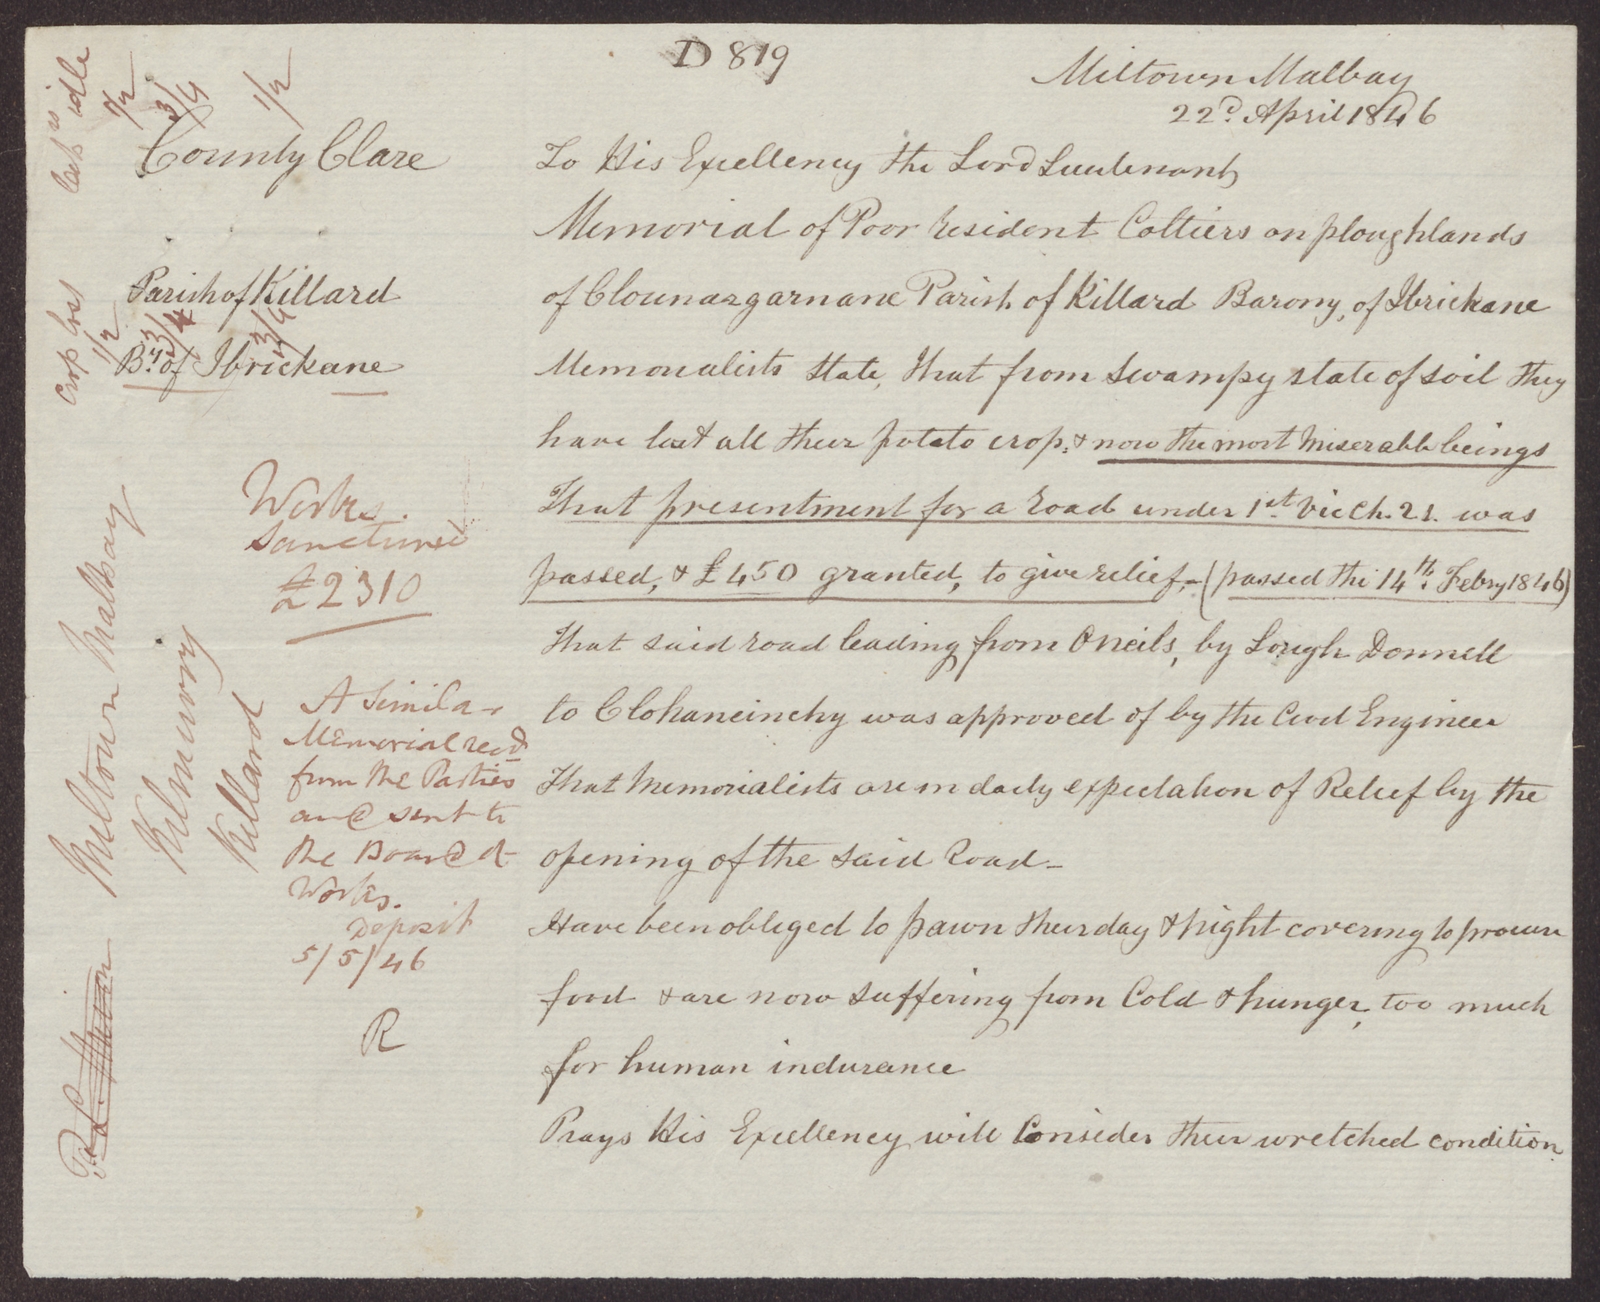 D 819
Miltown Malbay
22d. April 1846
County Clare
To His Excellency the Lord Lieutenant
Memorial of Poor resident Cottiers on ploughlands
of Clounagarnane Parish of Killard Barony, of Ibrickane
Memorialists state, that from swampy state of soil they
have lost all their potato crop, & now the most miserable beings
That presentment for a road under 1st. Vic Ch. 21. was
passed, & £450 granted, to give relief,- (passed the 14th. Febry 1846)
That said road leading from Oneils, by Lough Donnell
to Clohaneinchy was approved of by the Civil Engineer
That Memorialists are in daily expectation of Relief by the
opening of the said Road-
Have been obliged to pawn their day & night covering to procure
food & are now suffering from Cold & hunger, too much
for human indurance
Prays His Excellency will Consider their wretched condition.
Parish of Killard
By. of Ibrickane
Works.
Sanctioned
£2310
A Similar
Memorial recd
from the Parties
and sent to
the Board of
Works.
Deposit
5/5/46
R
idle
1/2
3/4
1/2
Crop lost
1/2
3/4
3/4
Miltown Malbay
Kilmurry
Killard